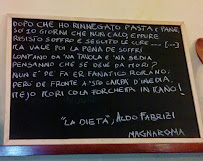 DOPO CHE HO RINNEGATO PASTA E PANE,
SO' 10 GIORNI CHE NUN CALO, EPPURE
RESISTO, SOFFRO E SEGUITO LE CURE ... (...)
MA VALE POI LA PENA DE SOFFRÌ
LONTANO DA 'NA TAVOLA E 'NA SEDIA
PENSANNO CHE SE DEVE DA MORÌ?
NUN È PE' FÀ ER FANATICO ROMANO;
PERÒ DE FRONTE A 'STO CALICE D'AMAREZZA
MEJO MORÌ CO' LA PORCHETTA IN MANO!
"LA DIETA", ALDO FABRIZI
MAGNAROMA